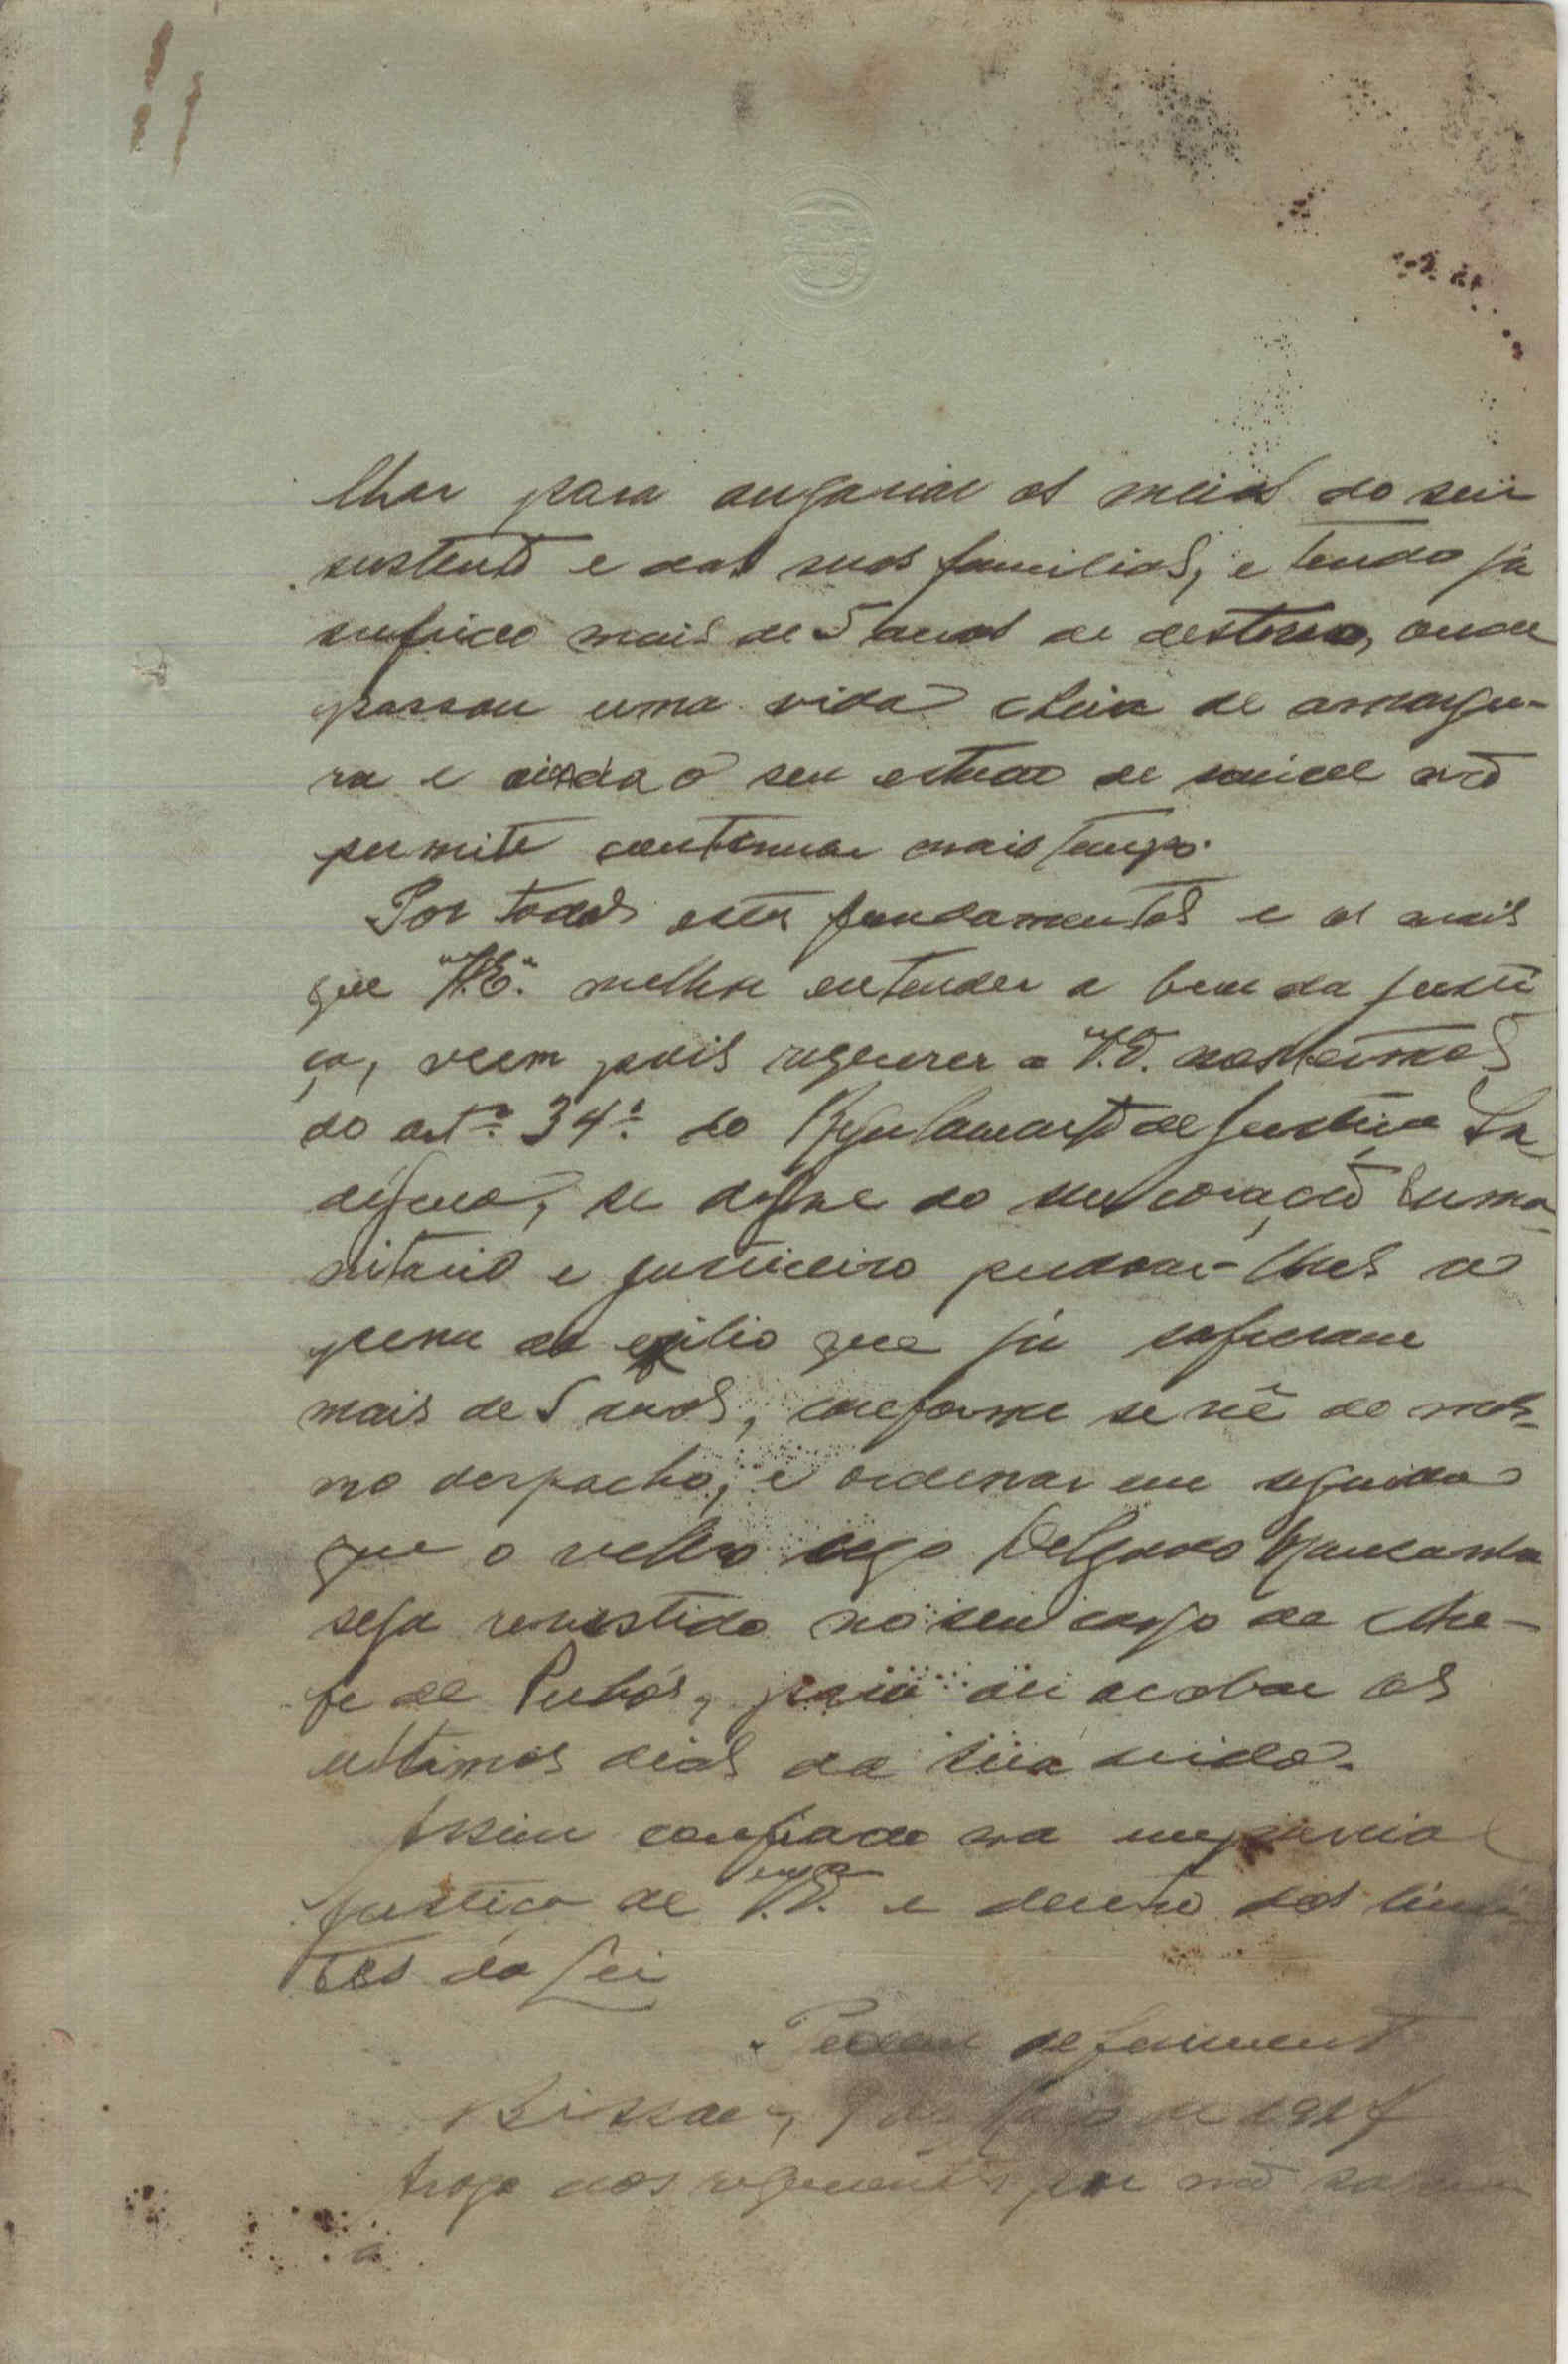 lhar para angariar os meios do seu
sustento e das suas familias, e tendo já
sufrido mais de 5 anos de desterro, onde
passou uma vida cheia de amargu-
ra e ainda o seu estado de saúde não
permite continuar mais tempo.
Por todos estes fundamentos e os mais
que V.Exª. melhor entender a bem da justi
ça, veem pois requerer a V.Exª. nos termos
do artº. 34º. do Regulamento de Justiça In
digena, se digne do seu coração huma
nitario e justiceiro perdoar-lhes a
pena do exilio que já sofreram
mais de 5 anos, conforme se vê do mes-
mo despacho, e ordenar em seguida
que o velho cego Delgado
seja revestido no seu cargo de che-
fe de Pubós, para ali acabar os
ultimos dias da sua vida.
Assim confiado na imparcial
justiça de V.Exª. e dentro dos limi
tes da Lei
Pedem deferimento
Bissau, 9 de Maio de 19
A rogo dos requerentes por não saberem